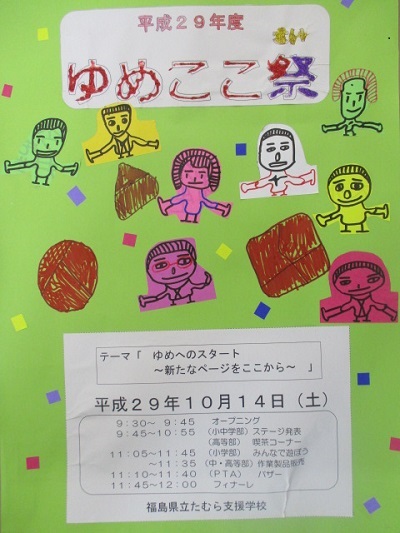 平成29年度
ゆめここ祭
テーマ「　ゆめへのスタート
～新たなページをここから～　」
平成29年10月14日（土）
9:30～ 9:45　オープニング
9:45～10:55　（小中学部）ステージ発表
（高等部）　喫茶コーナー
11:05～11:45　（小学部）　みんなで遊ぼう
～11:35　（中・高等部）作業製品販売
11:10～11:40　（PTA）　バザー
11:45～12:00　フィナーレ
福島県立たむら支援学校